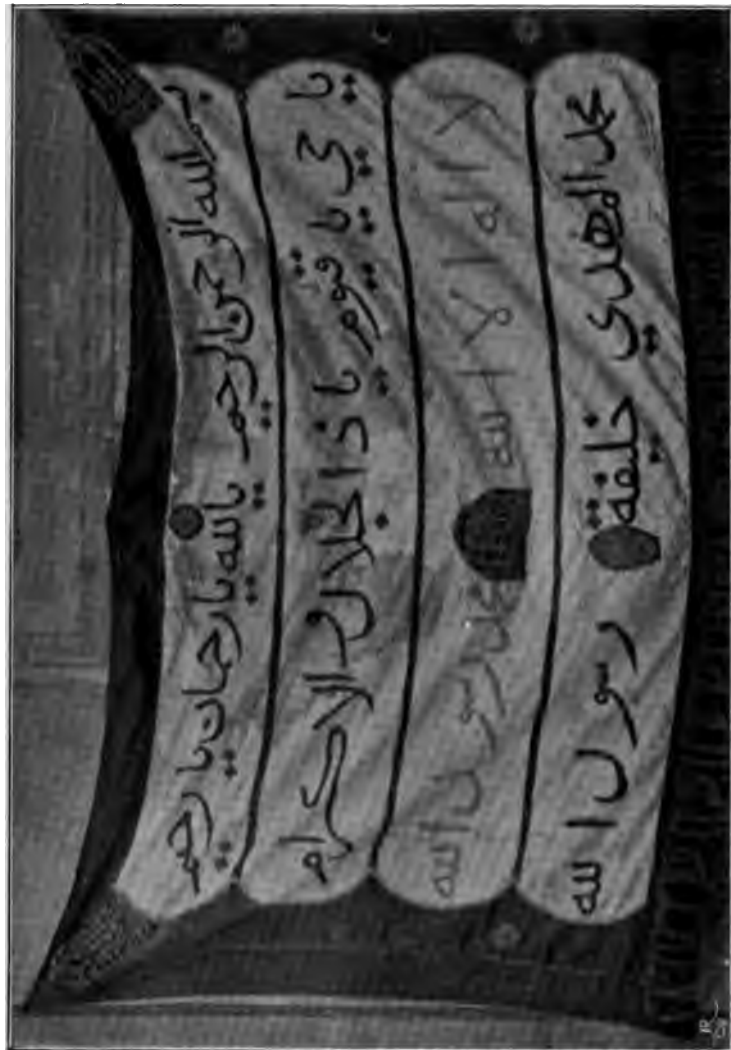 بسم الله الرحمن الرحيم يالله يا رحمان يا رحيم
يا حي يا قيوم يا ذا الجلال والاكرام
لا اله الا الله محمد رسول الله
محمد المهدي خليفة رسول الله